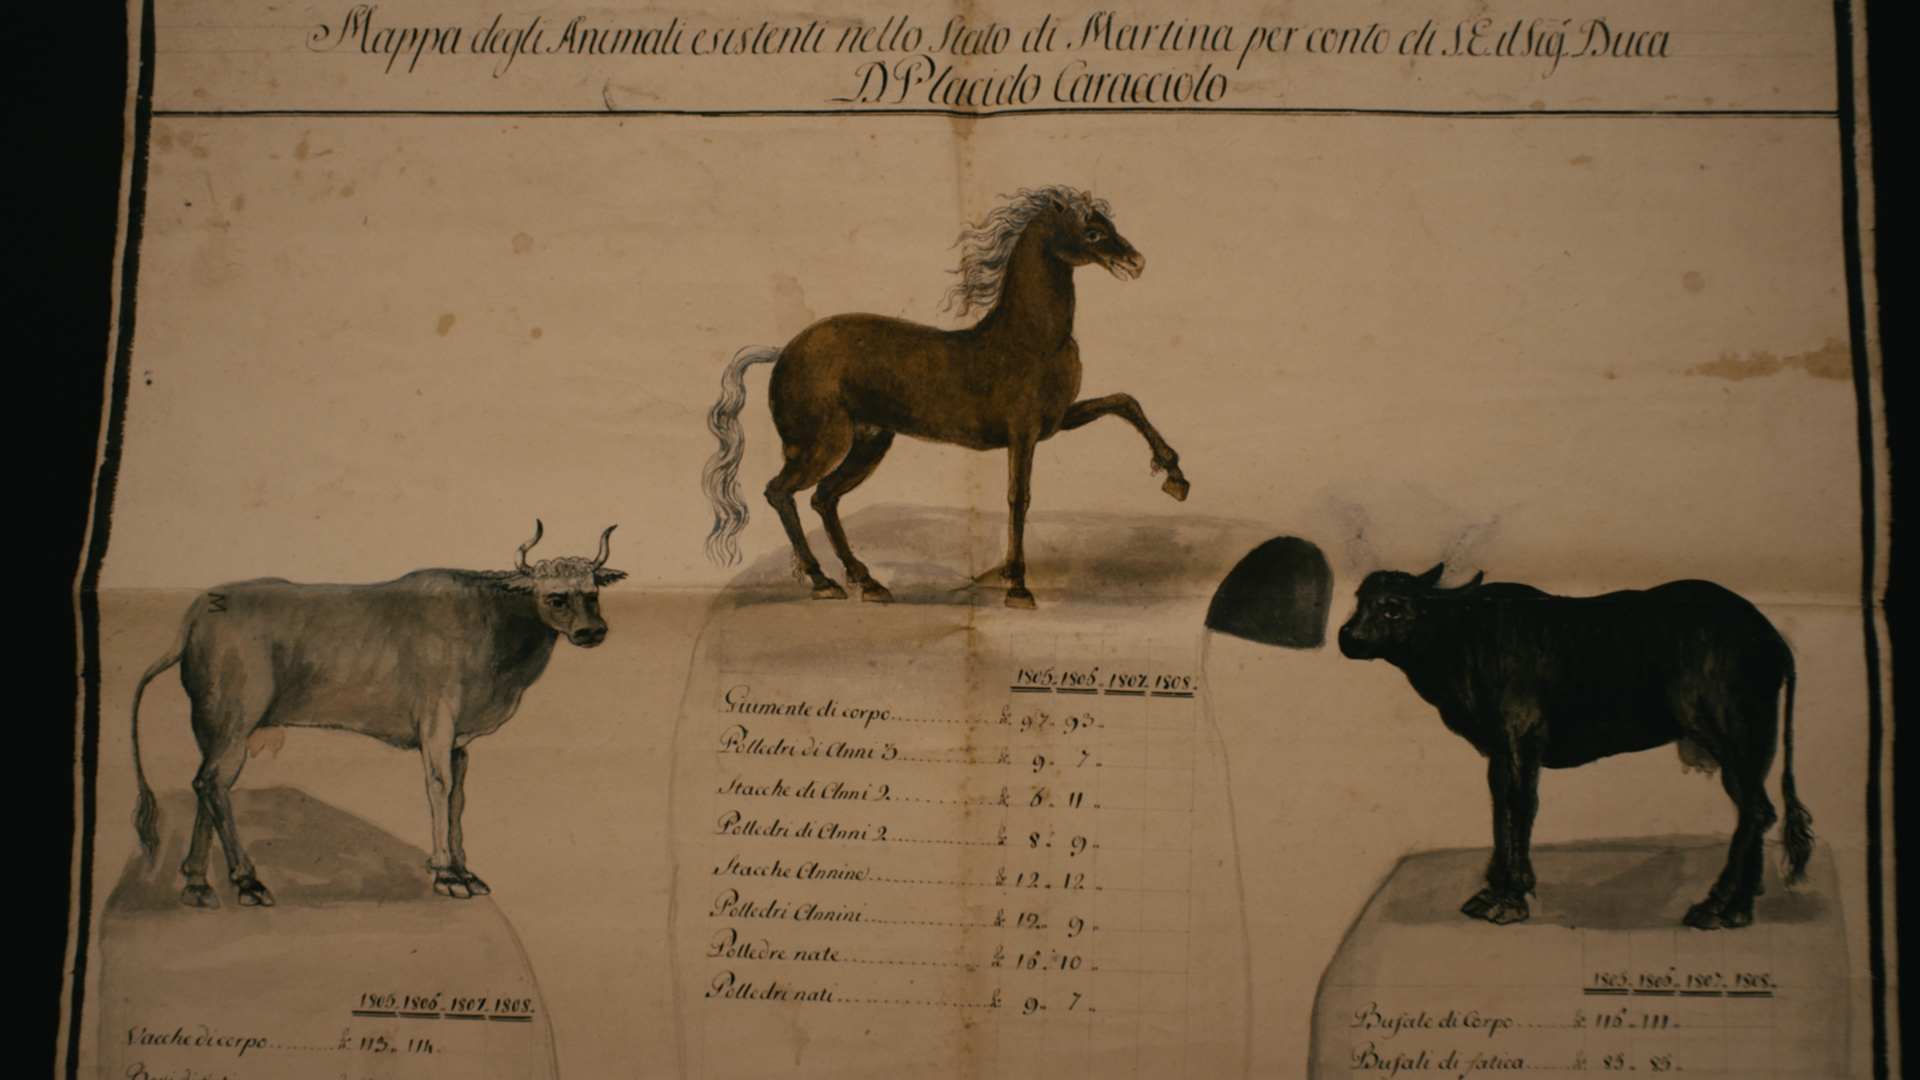 Mappa degli Animali esistenti nello Stato di Martina per conto di S.E. il Sig.r Duca
D. Placido Caracciolo
1805. 1806. 1807. 1808.
Giumente di corpo 97. 93.
Polledri di Anni 3 9. 7.
Stacche di Anni 2 6. 11.
Polledri di Anni 2 8. 9.
Stacche Annine 12. 12.
Polledri Annini 12. 9.
Polledre nate 16. 10.
Polledri nati 9. 7.
M
1805. 1806. 1807. 1808.
Vacche di corpo 113. 114.
1805. 1806. 1807. 1808.
Bufale di Corpo 116. 111.
Bufali di fatica 85. 85.